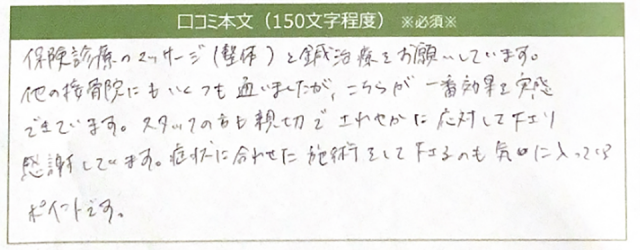 口コミ本文（150文字程度）※必須※
保険診療のマッサージ（整体）と鍼治療をお願いしています。
他の接骨院にもいくつも通いましたが、こちらが一番効果を実感
できています。スタッフの方も親切でこまやかに応対して下さり
感謝しています。症状に合わせた施術をして下さるのも気に入っている
ポイントです。